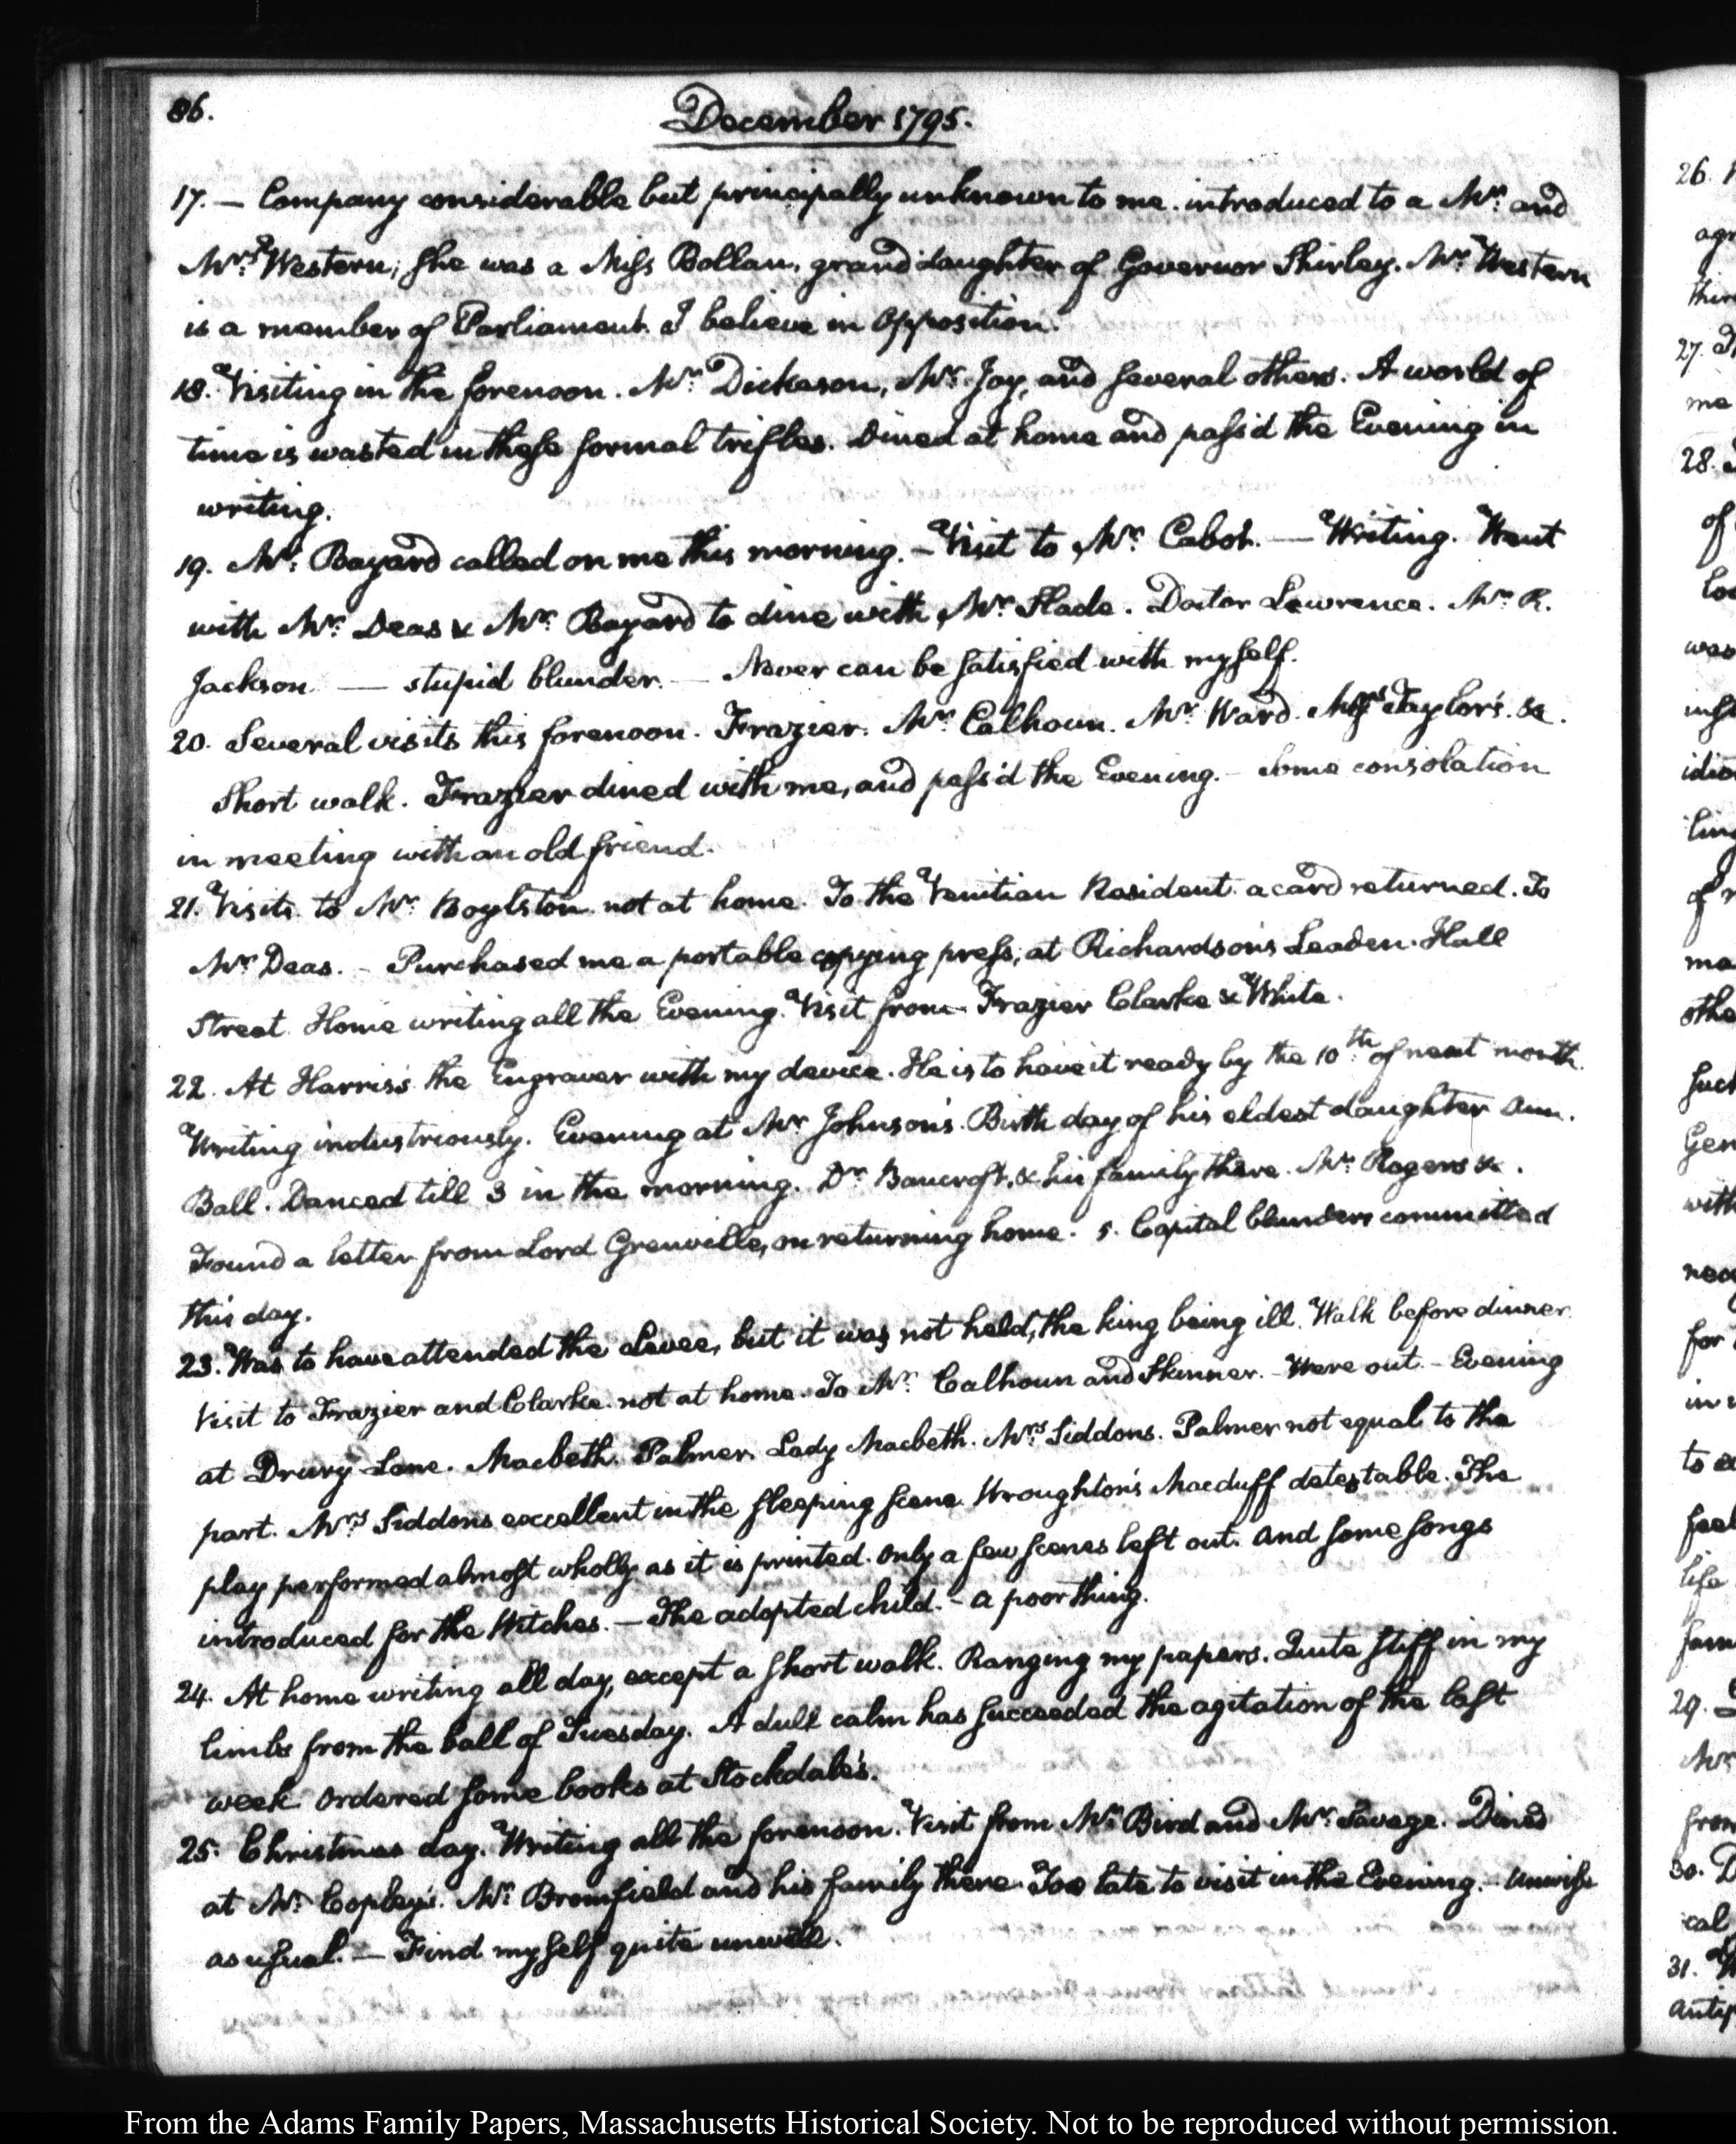 86.
December 1795.
17. — Company considerable but principally unknown to me. introduced to a Mr: and
Mrs: Western; she was a Miss Bollan, grand daughter of Governor Shirley. Mr: Western
is a member of Parliament. I believe in Opposition.
18. Visiting in the forenoon. Mr: Dickason, Mr: Joy, and several others. A world of
time is wasted in these formal trifles. Dined at home and pass'd the Evening in
writing.
19. Mr: Bayard called on me this morning. — Visit to, Mr: Cabot. — Writing. Went
with Mr: Deas & Mr: Bayard to dine with, Mr: Slade. Doctor Lawrence. Mr: R.
Jackson — stupid blunder. — Never can be satisfied with myself.
20. Several visits this forenoon. Frazier. Mr: Calhoun. Mr: Ward. Taylor's. &c.
Short walk. Frazier dined with me, and pass'd the Evening. — Some consolation
in meeting with an old friend.
21. Visits to Mr: Boylston not at home. To the Venitian Resident. a card returned. To
Mr: Deas. — Purchased me a portable copying press, at Richardson's Leaden-Hall
Street. Home writing all the Evening. Visit from Frazier Clarke & White.
22. At Harris's the Engraver with my device. He is to have it ready by the 10th: of next month.
Writing industriously. Evening at Mr Johnson's. Birth day of his eldest daughter Ann.
Ball. Danced till 3 in the morning. Dr Bancroft, & his family there. Mr: Rogers &c.
Found a letter from Lord Grenville, on returning home. 5. Capital blunders committed
this day.
23. Was to have attended the Levee, but it was not held, the king being ill. Walk before dinner.
Visit to Frazier and Clarke. not at home. To Mr: Calhoun and Skinner. — Were out. — Evening
at Drury Lane. Macbeth. Palmer. Lady Macbeth. Mrs: Siddons. Palmer not equal to the
part. Mrs: Siddons excellent in the sleeping scene. Wroughton's Macduff detestable. The
play performed almost wholly as it is printed. Only a few scenes left out. and some songs
introduced for the Witches. — The adopted child. — a poor thing.
24. At home writing all day, except a short walk. Ranging my papers. Quite stiff in my
limbs from the ball of Tuesday. A dull calm has succeeded the agitation of the last
week. Ordered some books at Stockdale's.
25. Christmas day. Writing all the forenoon. Visit from Mr: Bird and Mr: Savage. Dined
at Mr: Copley's. Mr: Bromfield and his family there. Too late to visit in the Evening. — Unwise
as usual. — Find myself quite unwell.
26.
27.
28.
of
29.
30.
31.
From the Adams Family Papers, Massachusetts Historical Society. Not to be reproduced without permission.